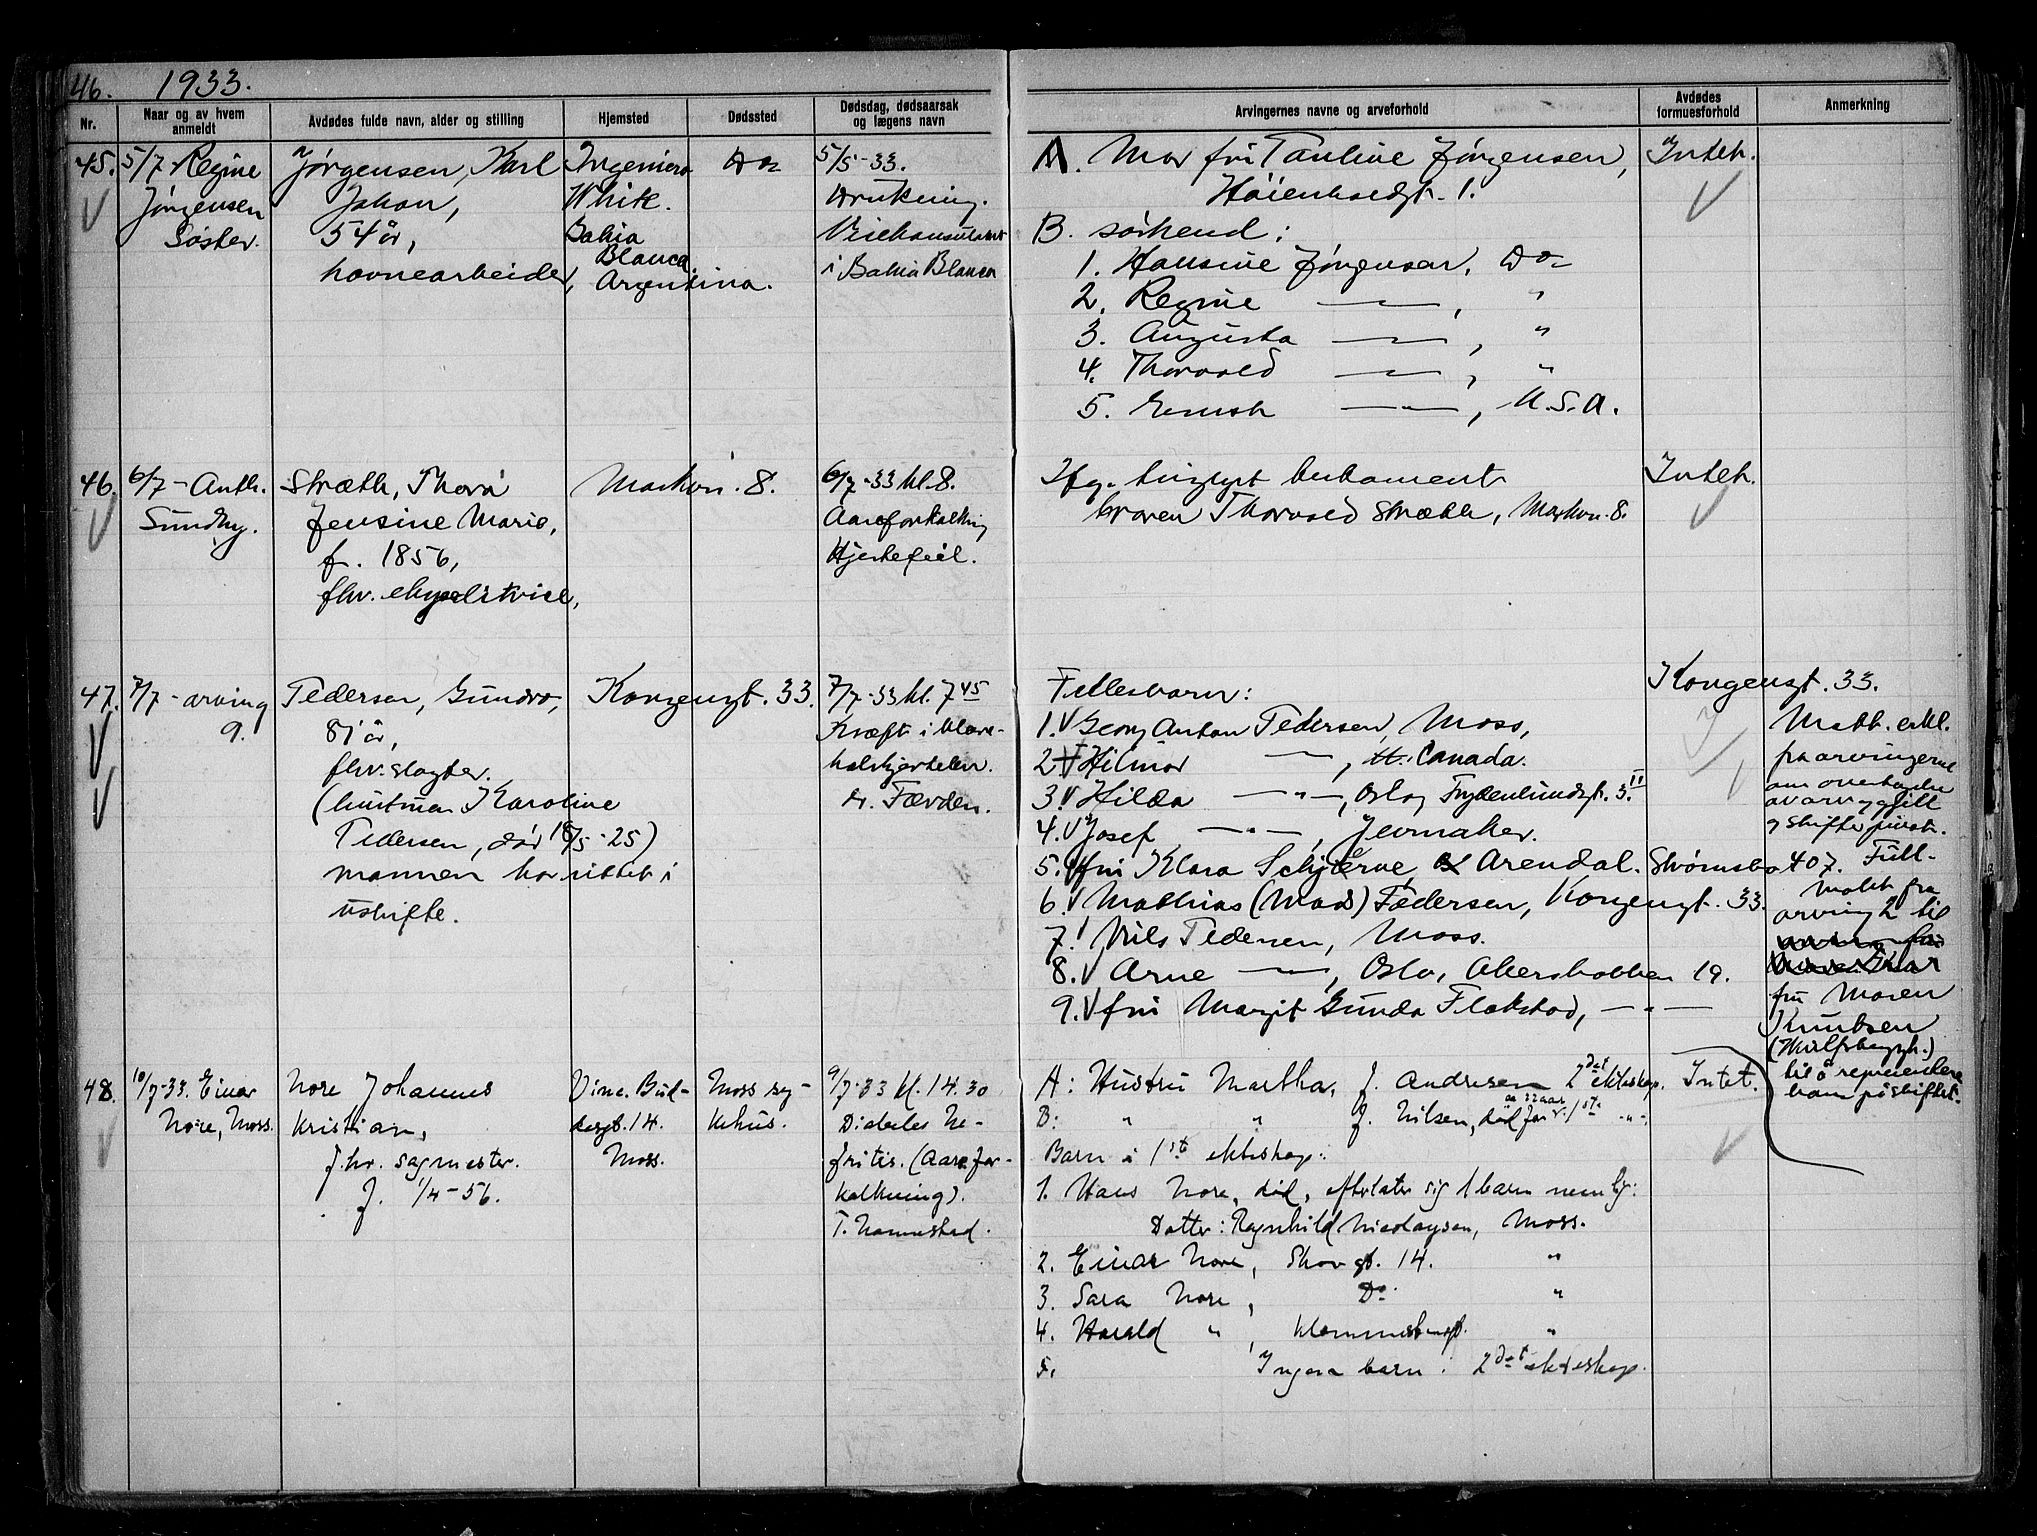 46. 1933.
Nr.
Naar og av hvem anmeldt
Avdødes fulde navn, alder og stilling
Hjemsted
Dødssted
Dødsdag, dødsaarsak og lægens navn
Arvingernes navne og arveforhold
Avdødes formuesforhold
Anmerkning
45.
5/7 - Regine
Jørgensen
Søster.
Jørgensen, Karl
Johan,
54 år,
havnearbeider,
Ingeniero
White.
Bahia
Blanca,
Argentina.
Do
5/5-33.
Drukning.
Visekonsulatet
i Bahia Blanca
A. Mor fru Pauline Jørgensen,
Høienhaldgt. 1.
B. søskend:
1. Hansine Jørgensen, Do
2. Regine — , "
3. Augusta — , "
4. Thorvald — , "
5. Ernst — " — , U.S.A.
Intet.
46.
6/7 - Anth.
Sundby.
Stræth, Thora
Jensine Marie,
f. 1856,
fhv. ekspeditrice,
Markvn. 8.
6/7-33 kl. 8.
Aareforkalkning
Hjertefeil.
Ifg. tinglyst testament
broren Thorvald Stræth, Markvn. 8.
Intet.
47.
7/7 - arving
9.
Pedersen, Gundro,
81 år,
fhv. slagter.
(hustruen Karoline
Pedersen, død 18/5-25)
mannen har sittet i
uskifte.
Kongensgt. 33.
7/7-33 kl. 7 45
Kræft i blære-
halskjertelen.
dr. Færden.
Fellesbarn:
1. Georg Anton Pedersen, Moss,
2. Hilmar — , Canada.
3. Hilda — " — , Oslo, Frydenlundsgt. 3. II
4. Josef — " — , Jevnaker.
5. fru Klara Schjærve, Arendal. Strømsbo 407.
6. Mathias (Mads) Pedersen, Kongensgt. 33.
7. Nils Pedersen, Moss.
8. Arne — , Oslo, Akersbakken 19.
9. fru Margit Gunda Flakstad, — " —
Kongensgt. 33.
Mott. erkl.
fra arvingerne
om overtagelse
av arv og gjeld
og skifter privat.
Full-
makt fra
arving 2 til
fru Maren
Knutsen
til å representere
ham på skiftet.
48.
10/7-33. Einar
Nore, Moss.
Nore Johannes
Kristian,
f.hv. sagmester.
f. 1/4-56.
Vinc. Bud-
desgt. 14.
Moss.
Moss sy-
kehus.
9/7-33 kl. 14.30
Diabetes Ne-
fritis. (Aarefor-
kalkning).
T. Hannestad.
A: Hustru Martha, f. Andresen 2det ekteskap.
B: " " f. Nilsen, død for ca 32 aar s. 1ste " "
Barn i 1st ekteskap:
1. Hans Nore, død, efterlater sig 1 barn nemlig:
Datter: Ragnhild Nicolaysen, Moss.
2. Einar Nore, Skovgt. 14. "
3. Sara Nore, Do "
4. Harald " , Klommestensgt. "
5. Ingen barn i 2det ekteskap.
Intet.